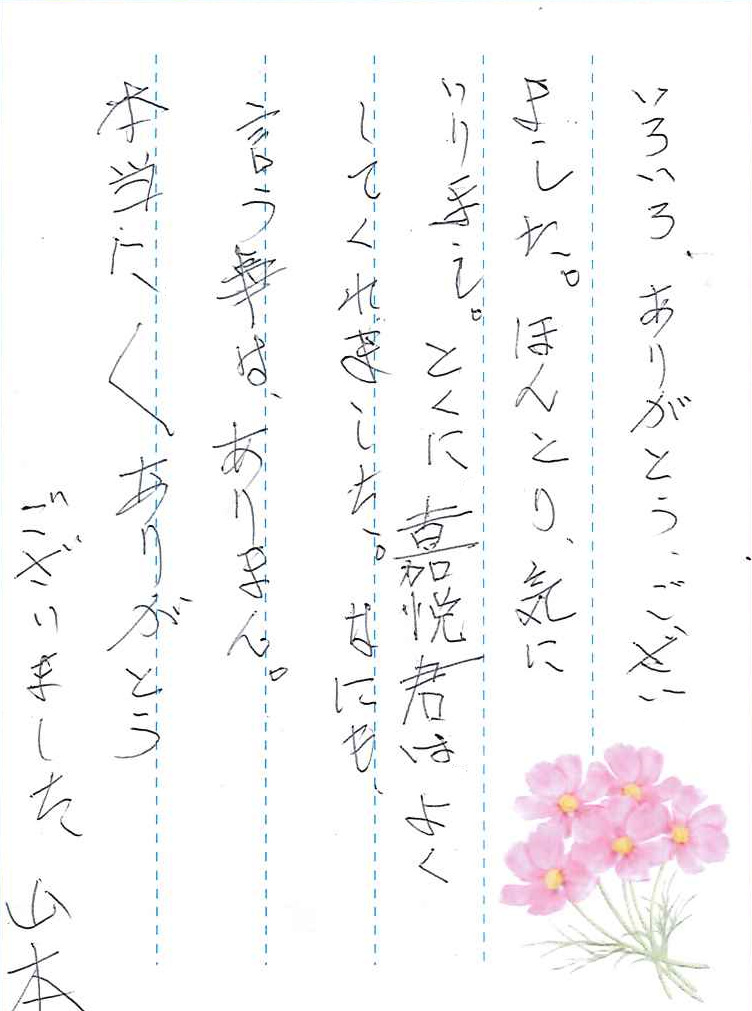 いろいろ、ありがとう、ござい
ました。ほんとり、気に
いりまし。とくに嘉悦君はよく
してくれました。なにも、
言う事は、ありません。
本当に〱ありがとう
ございりました 山本